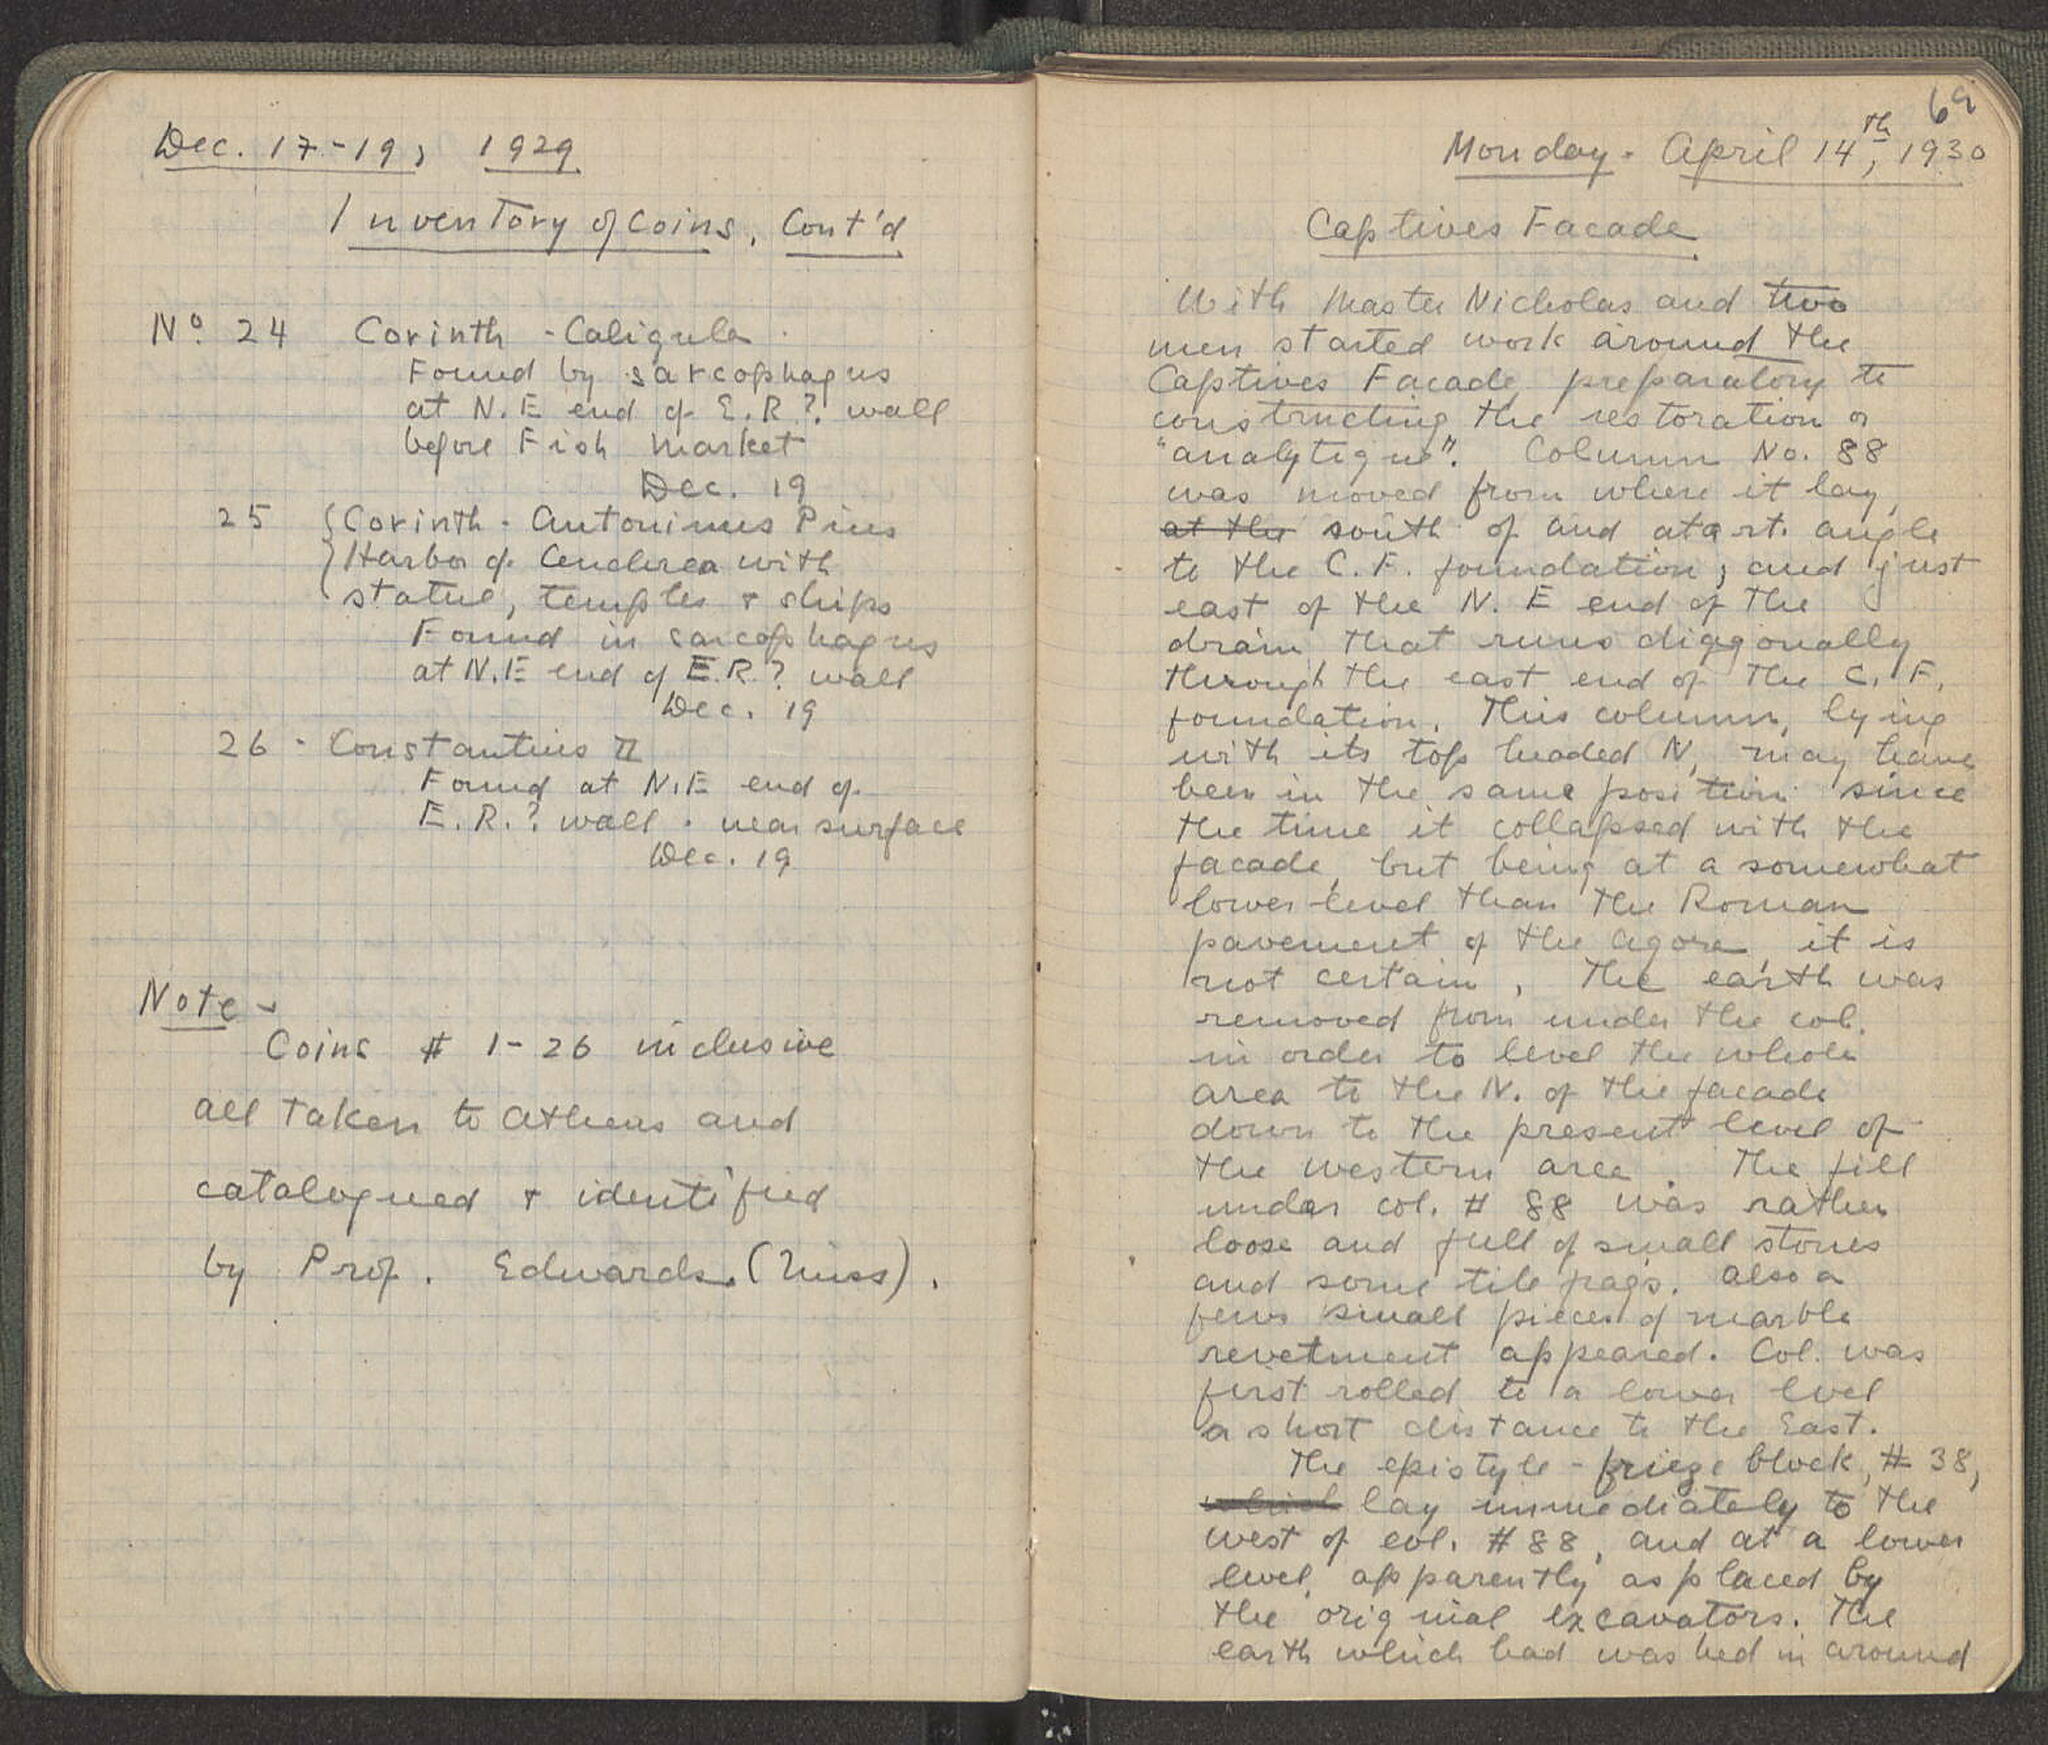 Dec. 17-19, 1929
Inventory of Coins, Cont'd
No. 24 Corinth - Caligula
Found by sarcophagus
at N.E end of E.R.? wall
before Fish Market
Dec. 19
25 {Corinth - Antoninus Pius
Harbor of Cenchrea with
statue, temples + ships
Found in sarcophagus
at N.E end of E.R.? wall
Dec. 19
26 - Constantius II
Found at N.E end of
E.R.? wall - near surface
Dec. 19
Note -
Coins # 1-26 inclusive
all taken to Athens and
catalogued + identified
by Prof. Edwards. (Miss).
69
Monday - April 14th, 1930
Captives Facade
With Master Nicholas and two
men started work around the
Captives Facade, preparatory to
constructing the restoration or
"analytique". Column No. 88
was moved from where it lay,
at the south of and at a rt. angle
to the C.F. foundation, and just
east of the N.E end of the
drain that runs diagonally
through the east end of the C.F.
foundation. This column, lying
with its top headed N, may have
been in the same position since
the time it collapsed with the
facade, but being at a somewhat
lower level than the Roman
pavement of the agora it is
not certain. The earth was
removed from under the col.
in order to level the whole
area to the N. of the facade
down to the present level of
the western area. The fill
under col. # 88 was rather
loose and full of small stones
and some tile frags. Also a
few small pieces of marble
revetment appeared. Col. was
first rolled to a lower level
a short distance to the East.
The epistyle - frieze block, # 38,
which lay immediately to the
west of col. # 88, and at a lower
level, apparently as placed by
the original excavators. The
earth which had washed in around